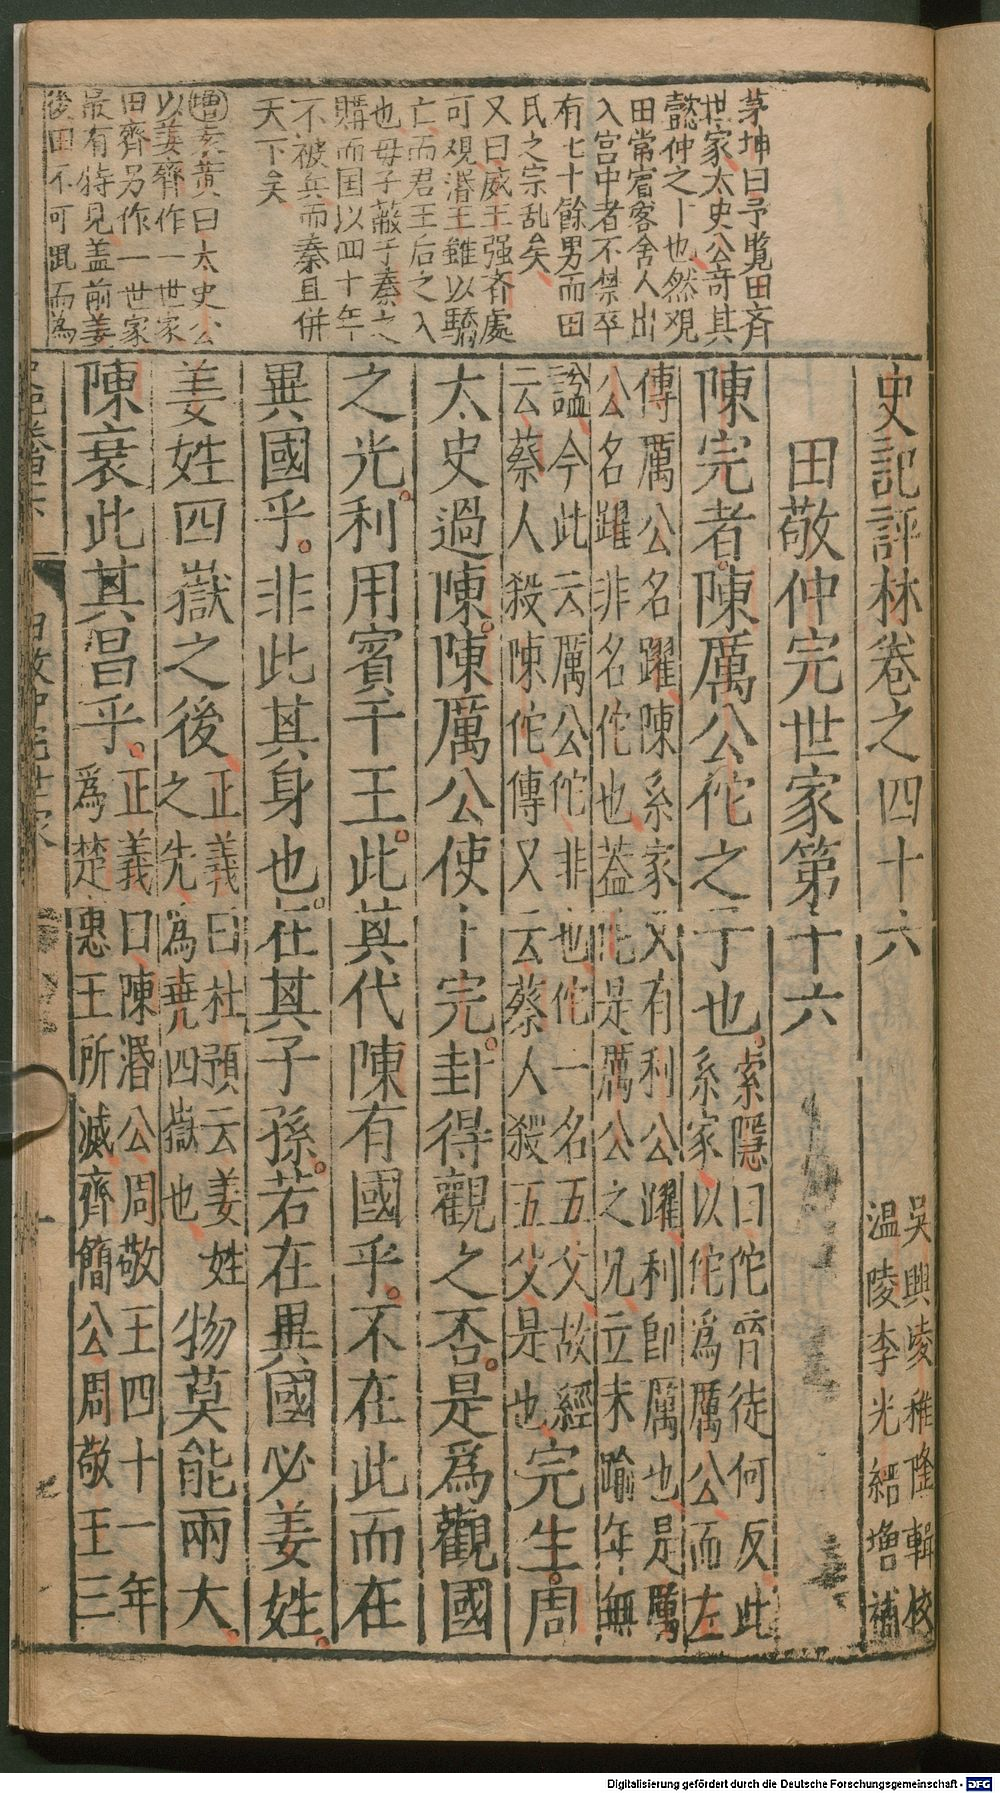 茅坤曰予覧田斉
世家太史公奇其
懿仲之卜也然观
田常賔客舍人出
入宫中者不禁卒
有七十餘男而田
氏之宗乱矣
又曰威王强斉處
可观湣王雖以驕
亡而君王后之入
也毋子蔽于秦之
購而国以四十年
不被兵而秦且併
天下矣
增黄曰太史公
以姜齊作一世家
田齊另作一世家
最有特見盖前姜
後田不可混而為
史記評林卷之四十六
吳興凌稚隆輯校
温陵李光縉增補
田敬仲完世家第十六
陳完者陳厲公佗之子也
索隱曰佗音徒何反此
系家以佗為厲公而左
傳厲公名躍陳系家又有利公躍利即厲也是厲
公名躍非名佗也葢佗是厲公之兄立未踰年無
謚今此云厲公佗非也佗一名五父故經
云蔡人殺陳佗傳又云蔡人殺五父是也
完生周
太史過陳陳厲公使卜完卦得觀之否是爲觀國
之光利用賓于王此其代陳有國乎不在此而在
異國乎非此其身也在其子孫若在異國必姜姓
姜姓四嶽之後
正義曰杜預云姜姓
之先為堯四嶽也
物莫能兩大
陳衰此其昌乎
正義曰陳湣公周敬王四十一年
爲楚惠王所滅齊簡公周敬王三
田敬仲完世家
一
Digitalisierung gefördert durch die Deutsche Forschungsgemeinschaft - DFG